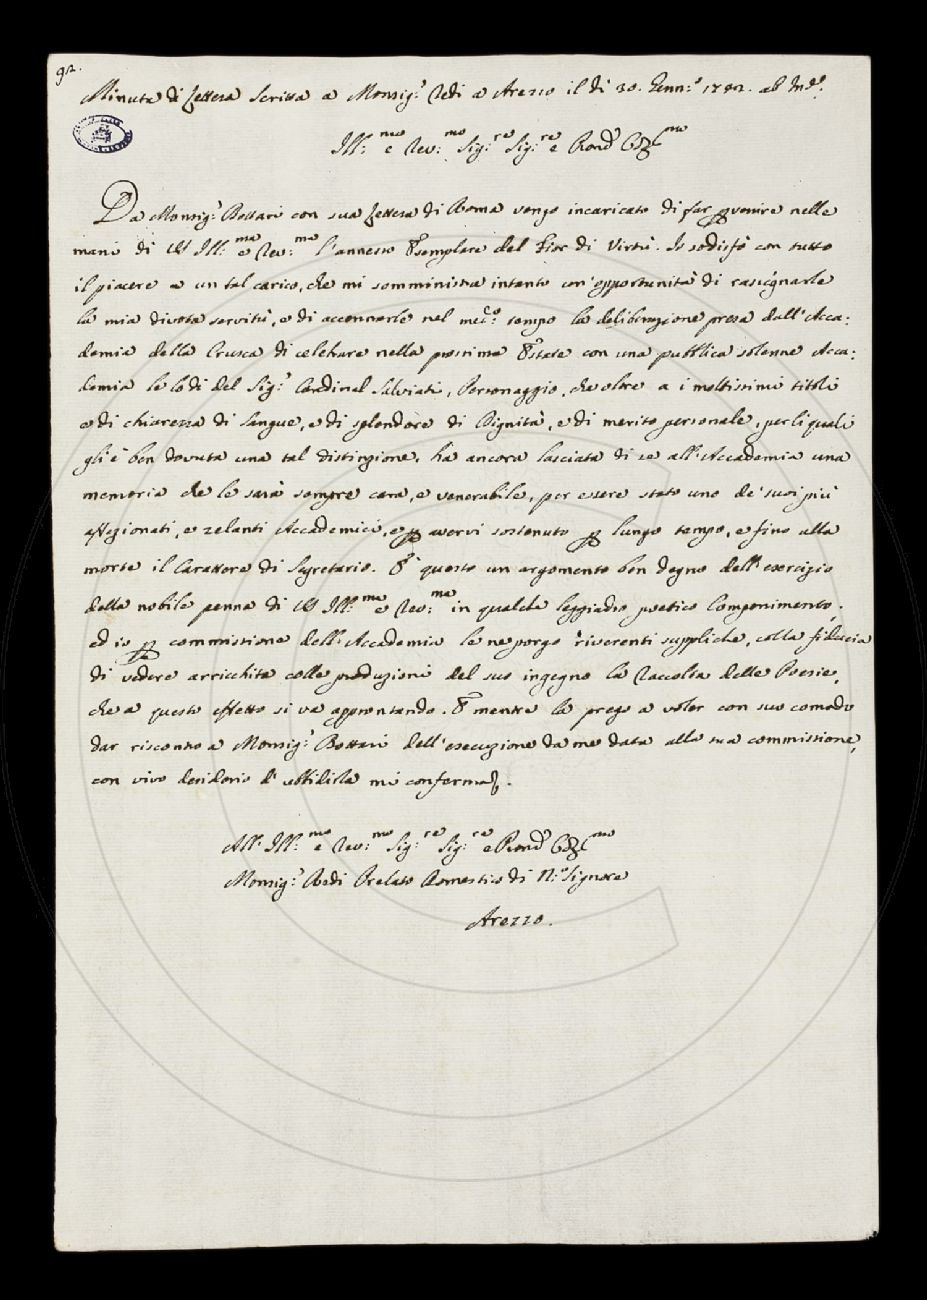 92.
Minuta di Lettera Scritta a Monsig.r Redi a Arezzo il dì 30. Genn.o 1742. ab Inc.e
Ill.mo e Rev.mo Sig.re Sig.re e Pron Col.mo
Da Monsig.r Bottari con sua Lettera di Roma vengo incaricato di far pervenire nelle
mani di VS Ill.ma e Rev.ma l'annesso Esemplare del Fior di Virtù. Io sodisfò con tutto
il piacere a un tal carico, che mi somministra intanto un'opportunità di rassegnarle
la mia divota servitù, e di accennarle nel med.o tempo la deliberazione presa dall'Acca:
demia della Crusca di celebrare nella prossima Estate con una pubblica solenne Acca:
demia le lodi del Sig.r Cardinal Salviati, Personaggio, che oltre a i moltissimi titoli
e di chiarezza di Sangue, e di splendore di Dignità, e di merito personale, per li quali
gli è ben dovuta una tal distinzione, ha ancora lasciata di se all'Accademia una
memoria che le sarà sempre cara, e venerabile, per essere stato uno de' suoi più
affezionati, e zelanti Accademici, e per avervi sostenuto per lungo tempo, e fino alla
morte il Carattere di Segretario. È questo un argomento ben degno dell'esercizio
della nobile penna di VS Ill.ma e Rev.ma in qualche leggiadro poetico Componimento,
ed io per commissione dell'Accademia le ne porgo riverenti suppliche, colla fiducia
di vedere arricchita colle produzioni del suo ingegno la Raccolta delle Poesie,
che a questo effetto si va approntando. E mentre la prego a voler con suo comodo
dar riscontro a Monsig.r Bottari dell'esecuzione da me data alla sua commissione,
con vivo desiderio d'ubbidirla mi confermo.
All' Ill.mo e Rev.mo Sig.re Sig.re e Pron Col.mo
Monsig.r Redi Prelato Domestico di N.ro Signore
Arezzo.